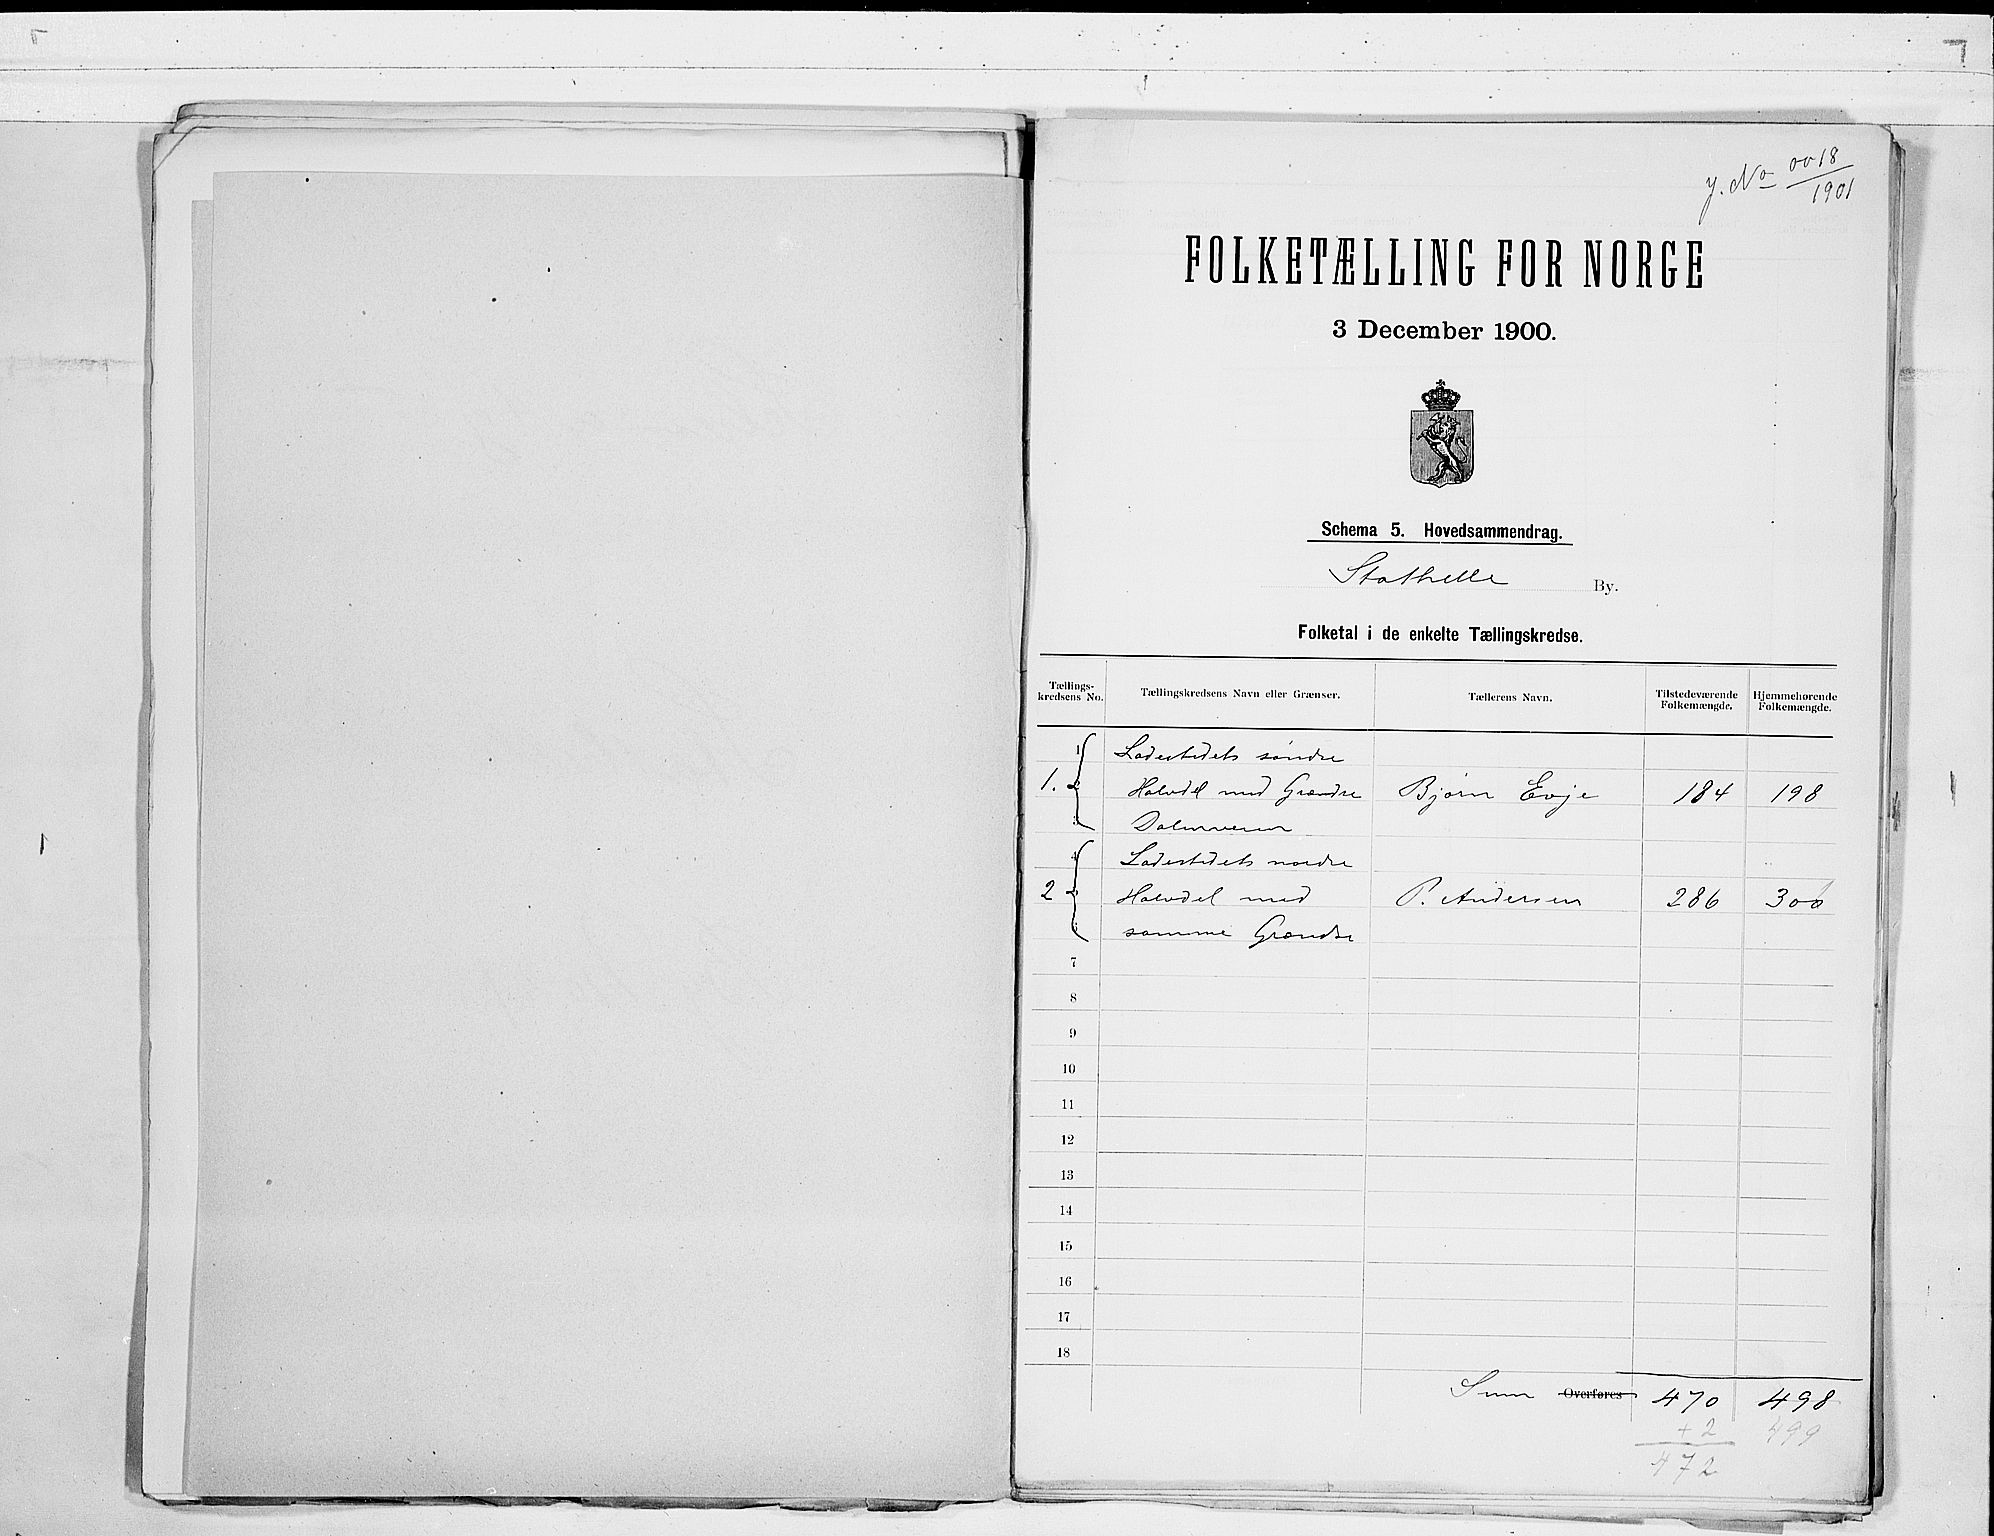 J. No 0018
1901
FOLKETÆLLING FOR NORGE
3 December 1900.
Schema 5. Hovedsammendrag.
Stathelle By.
Folketal i de enkelte Tællingskredse.
Tællings-kredsens No. Tællingskredsens Navn eller Grænser. Tællerens Navn. Tilstedeværende Folkemængde. Hjemmehørende Folkemængde.
1 Ladestedets søndre
1. Halvdel med Grændse Bjørn Evje 184 198
4 Ladestedets nordre
2 Halvdel med P. Andersen 286 300
samme Grændse
7
8
9
10
11
12
13
14
15
16
17
18
Sum Overføres 470 498
+2 499
472